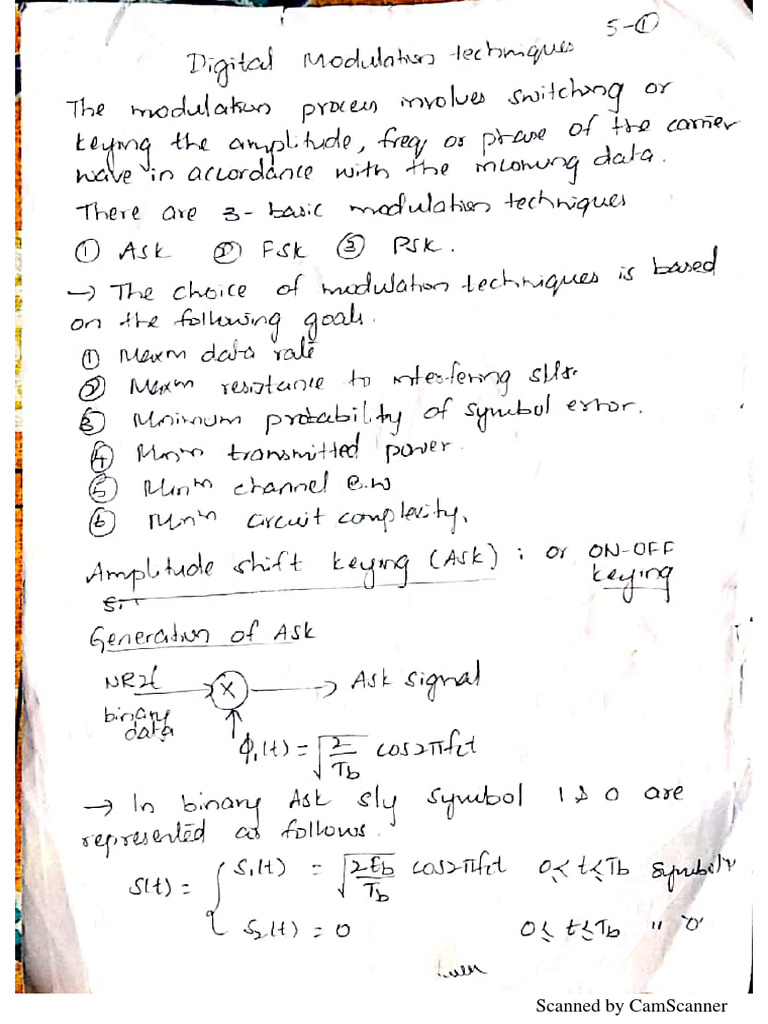 5-①
Digital Modulation techniques
The modulation process involves switching or
keying the amplitude, freq or phase of the carrier
wave in accordance with the incoming data.
There are 3-basic modulation techniques
① ASK ② FSK ③ PSK.
→ The choice of modulation techniques is based
on the following goals.
① Maxm data rate
② Maxm resistance to interfering
③ Minimum probability of symbol error.
④ Minm transmitted power.
⑤ Minm channel B.W
⑥ Minm circuit complexity.
Amplitude shift keying (ASK) : or ON-OFF
keying
Generation of ASK
NRZ → X → ASK signal
binary
data
ϕ₁(t) = √(2/Tb) cos2πfct
→ In binary ASK s/y symbol 1 & 0 are
represented as follows.
S(t) = { S₁(t) = √(2Eb/Tb) cos2πfct 0≤t≤Tb Symbol '1'
S₂(t) = 0 0≤t≤Tb " '0'
Scanned by CamScanner